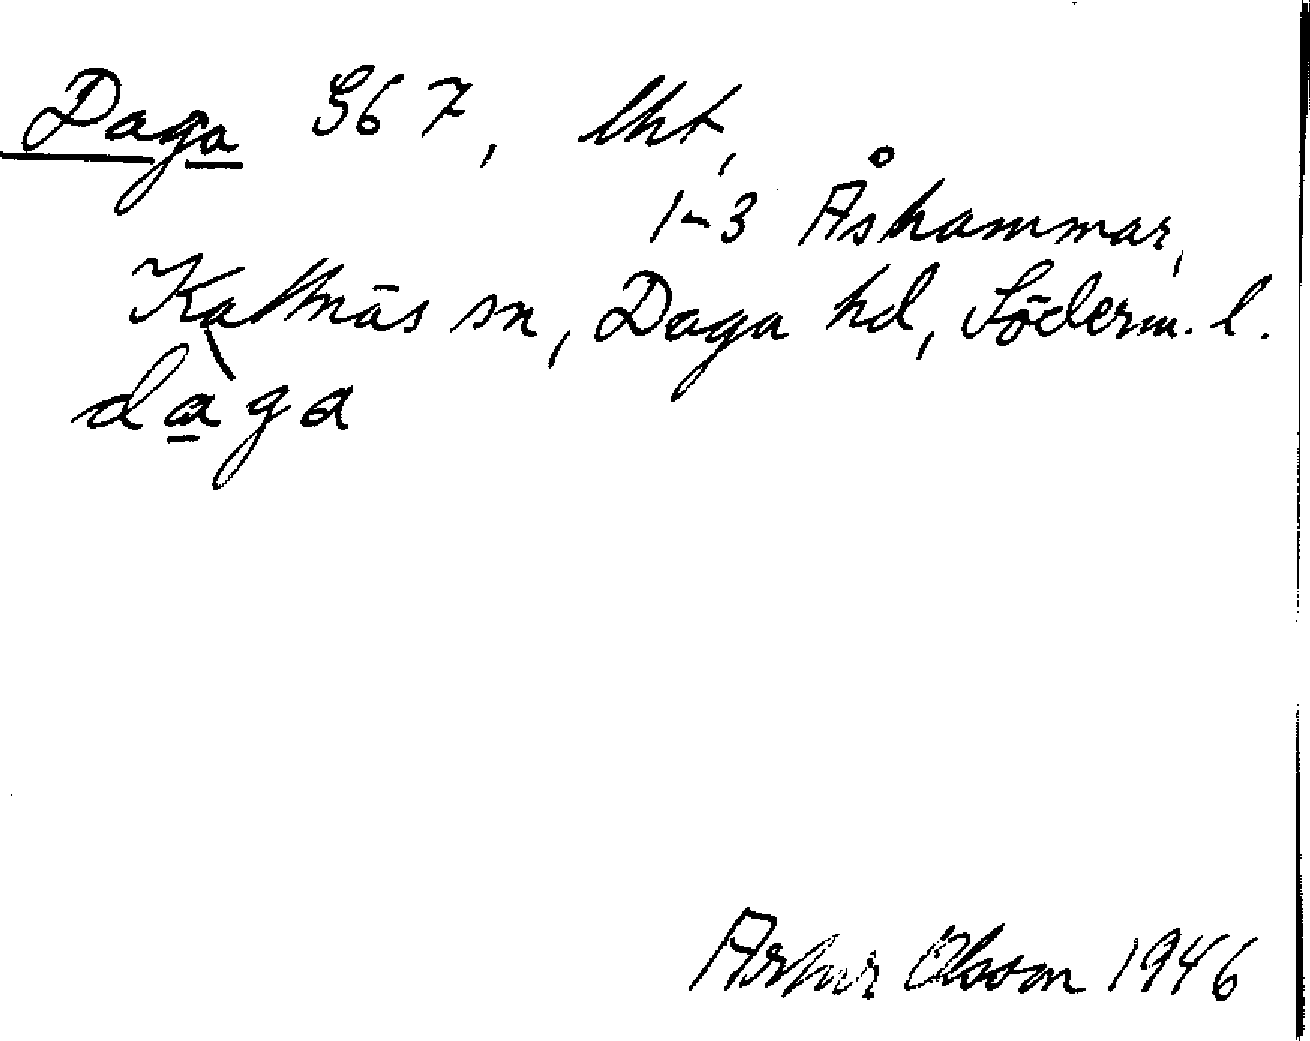 Daga S6 7, lht,
1-3 Åshammar,
Kattnäs sn, Daga hd, Söderm. l.
dàga
Arthur Olsson 1946